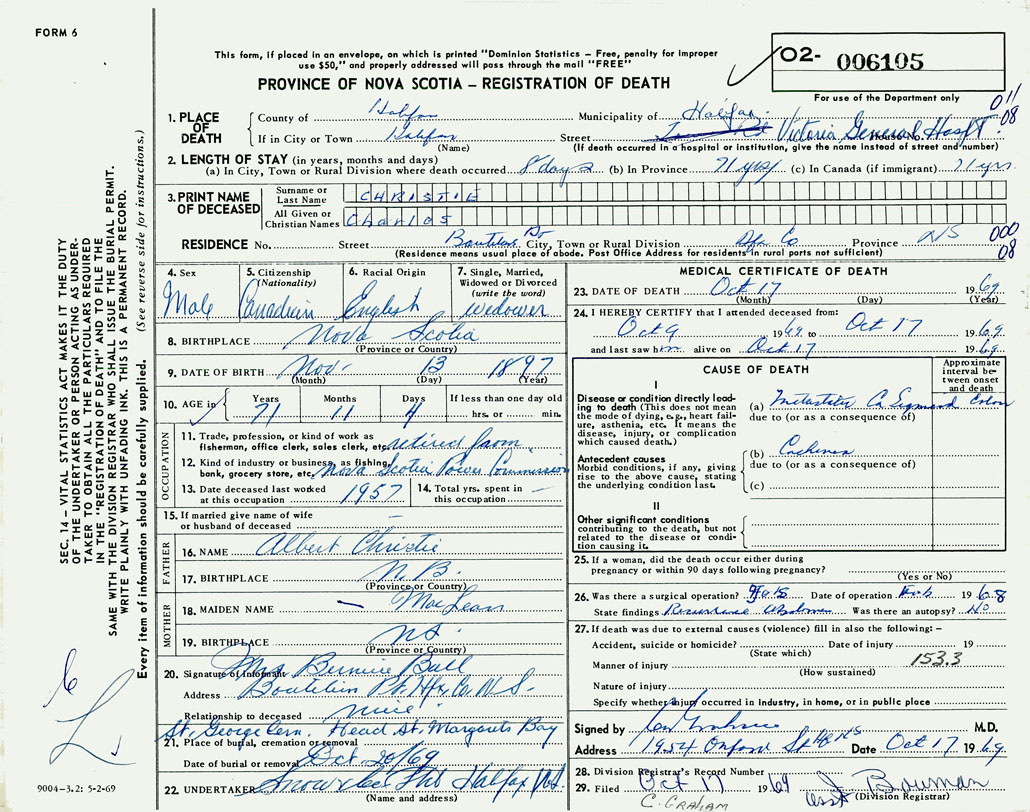 FORM 6
This form, if placed in an envelope, on which is printed "Dominion Statistics – Free, penalty for improper
use $50," and properly addressed will pass through the mail "FREE"
PROVINCE OF NOVA SCOTIA – REGISTRATION OF DEATH
O2- 006105
For use of the Department only
011
08
1. PLACE OF DEATH
County of Halifax
Municipality of Halifax
If in City or Town Halifax
(Name)
Street Victoria General Hospt.
House No.
(If death occurred in a hospital or institution, give the name instead of street and number)
2. LENGTH OF STAY (in years, months and days)
(a) In City, Town or Rural Division where death occurred 8 days (b) In Province 71 yrs (c) In Canada (if immigrant) 71 yrs
3. PRINT NAME OF DECEASED
Surname or Last Name CHRISTIE
All Given or Christian Names Charles
RESIDENCE No. Street City, Town or Rural Division Hfx Co Province NS
000
08
(Residence means usual place of abode. Post Office Address for residents in rural parts not sufficient)
4. Sex
Male
5. Citizenship
(Nationality)
Canadian
6. Racial Origin
English
7. Single, Married,
Widowed or Divorced
(write the word)
Widower
8. BIRTHPLACE Nova Scotia
(Province or Country)
9. DATE OF BIRTH Nov. 13 1897
(Month) (Day) (Year)
10. AGE
Years Months Days If less than one day old
71 11 4 hrs. or min.
OCCUPATION
11. Trade, profession, or kind of work as
fisherman, office clerk, sales clerk, etc. retired from
12. Kind of industry or business, as fishing,
bank, grocery store, etc. Nova Scotia Power Commission
13. Date deceased last worked
at this occupation 1957
14. Total yrs. spent in
this occupation –
15. If married give name of wife
or husband of deceased –
FATHER
16. NAME Albert Christie
17. BIRTHPLACE N.B.
(Province or Country)
MOTHER
18. MAIDEN NAME – MacLean
19. BIRTHPLACE NS.
(Province or Country)
20. Signature of Informant Mrs Bernice Bull
Address Boutiliers Pt. Hfx Co. N.S.
Relationship to deceased niece
St. George Cem. Head St. Margarets Bay
21. Place of burial, cremation or removal
Date of burial or removal Oct 20/69
22. UNDERTAKER Snow's Halifax N.S.
(Name and address)
MEDICAL CERTIFICATE OF DEATH
23. DATE OF DEATH Oct 17 1969
(Month) (Day) (Year)
24. I HEREBY CERTIFY that I attended deceased from:
Oct 9 1969 to Oct 17 1969
and last saw him alive on Oct 17 1969
CAUSE OF DEATH
Approximate
interval be-
tween onset
and death
I
Disease or condition directly lead-
ing to death (This does not mean
the mode of dying, e.g., heart fail-
ure, asthenia, etc. It means the
disease, injury, or complication
which caused death.)
(a) Metastatic Ca Sigmoid Colon
due to (or as a consequence of)
Antecedent causes
Morbid conditions, if any, giving
rise to the above cause, stating
the underlying condition last.
(b) Cachexia
due to (or as a consequence of)
(c)
II
Other significant conditions
contributing to the death, but not
related to the disease or condi-
tion causing it.
25. If a woman, did the death occur either during
pregnancy or within 90 days following pregnancy?
(Yes or No)
26. Was there a surgical operation? Date of operation Feb 1968
State findings Was there an autopsy? No
27. If death was due to external causes (violence) fill in also the following: –
Accident, suicide or homicide? Date of injury 19
(State which)
153.3
Manner of injury
(How sustained)
Nature of injury
Specify whether injury occurred in Industry, in home, or in public place
Signed by M.D.
Address Oxford St Date Oct 17 1969
28. Division Registrar's Record Number
29. Filed Oct 17 1969 Asst J. Bauman
(Division Registrar)
C. GRAHAM
SEC. 14 – VITAL STATISTICS ACT MAKES IT THE DUTY
OF THE UNDERTAKER OR PERSON ACTING AS UNDER-
TAKER TO OBTAIN ALL THE PARTICULARS REQUIRED
IN THE "REGISTRATION OF DEATH" AND TO FILE THE
SAME WITH THE DIVISION REGISTRAR WHO SHALL ISSUE THE BURIAL PERMIT.
WRITE PLAINLY WITH UNFADING INK. THIS IS A PERMANENT RECORD.
Every item of information should be carefully supplied. (See reverse side for instructions.)
9004-3.2: 5-2-69